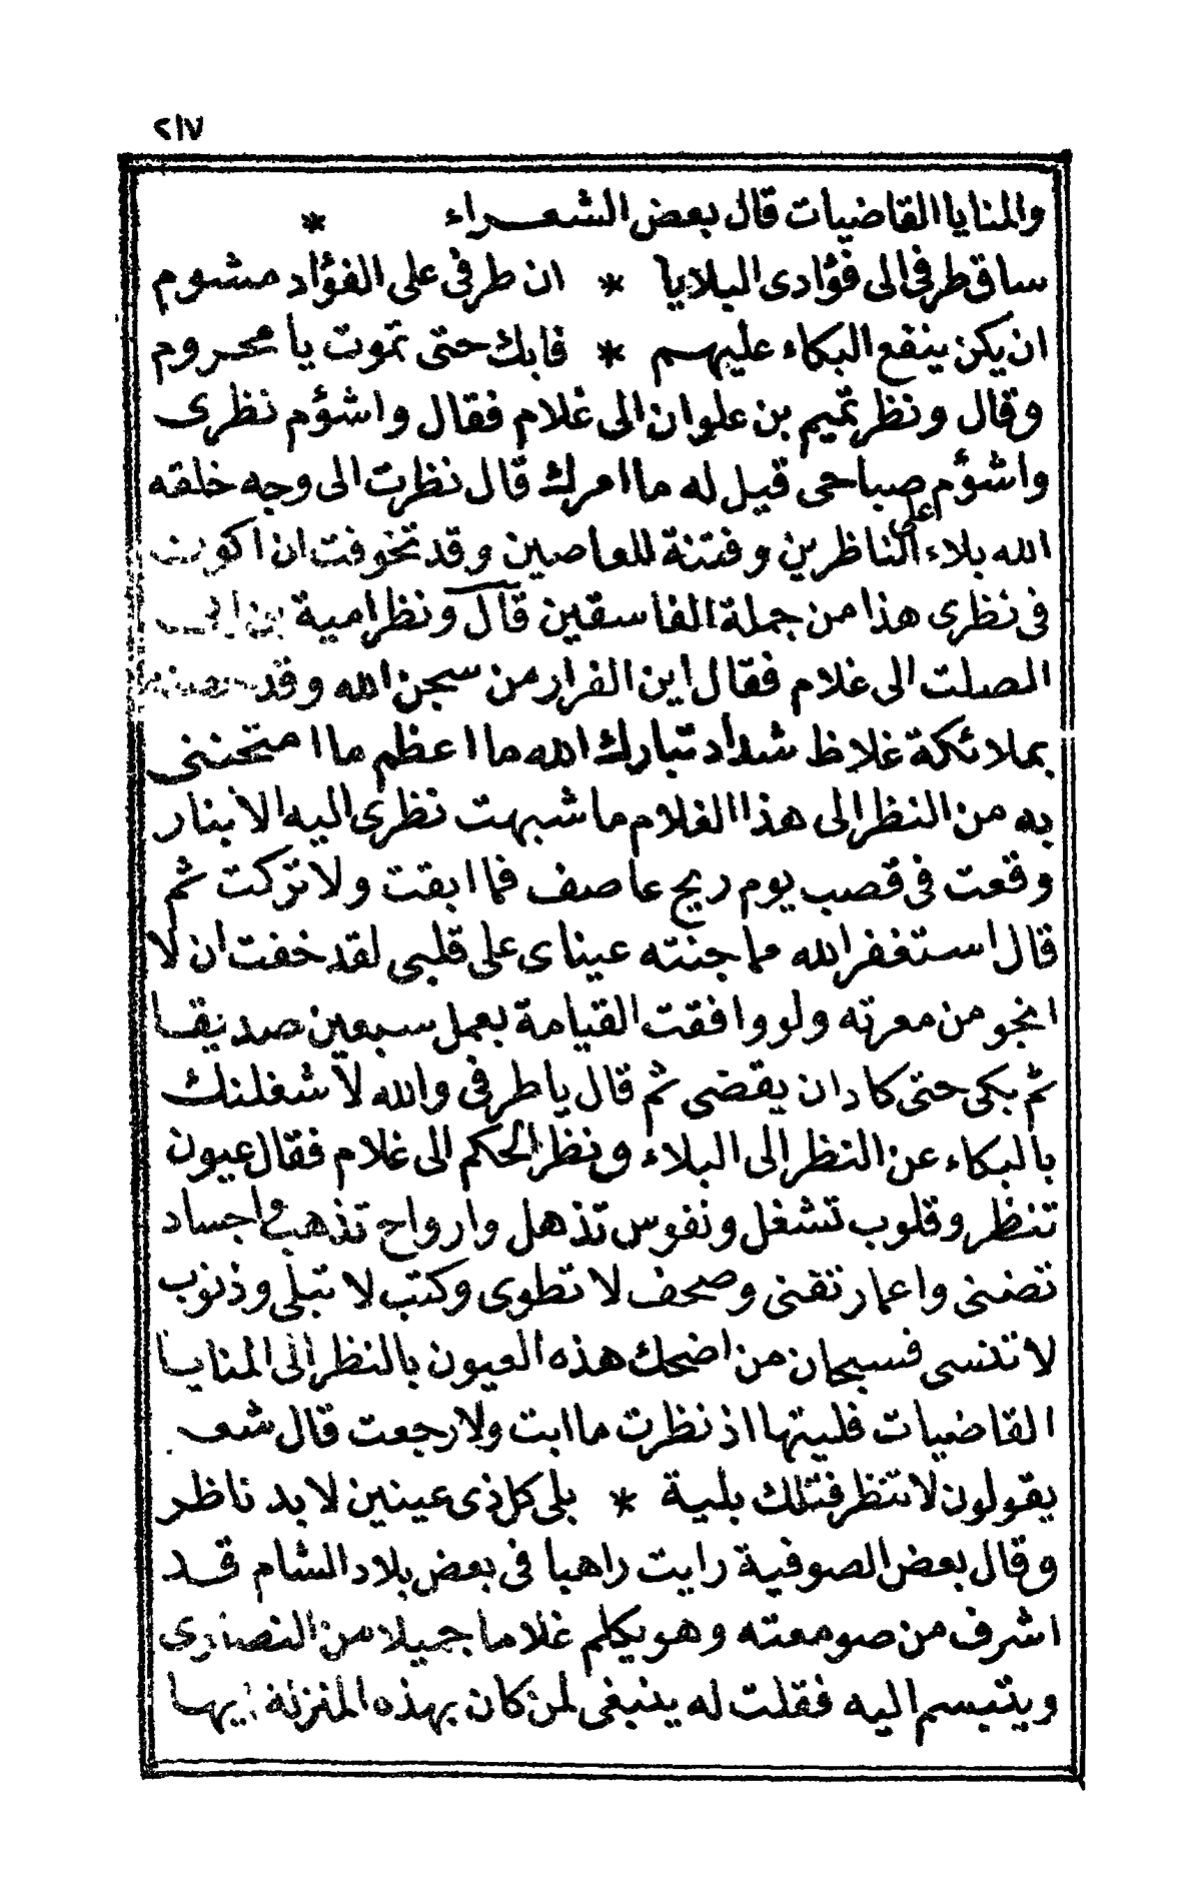 ٢١٧
والمنايا القاضيات قال بعض الشعراء *
ساق طرفى الى فؤادى البلايا * ان طرفى على الفؤاد مشوم
ان يكن ينفع البكاء عليهم * فابك حتى تموت يا محروم
وقال ونظر تميم بن علوان الى غلام فقال واشؤم نظرى
واشؤم صباحى قيل له ما امرك قال نظرت الى وجه خلقه
الله بلاء على الناظرين وفتنة للعاصين وقد تخوفت ان اكون
فى نظرى هذا من جملة الفاسقين قال ونظر امية بن ابى
الصلت الى غلام فقال اين الفرار من سجن الله وقد
بملائكة غلاظ شداد تبارك الله ما اعظم ما امتحننى
به من النظر الى هذا الغلام ما شبهت نظرى اليه الا بنار
وقعت فى قصب يوم ريح عاصف فما ابقت ولا تركت ثم
قال استغفر الله مما جنته عيناى على قلبى لقد خفت ان لا
انجو من معرته ولو وافقت القيامة بعمل سبعين صديقا
ثم بكى حتى كاد ان يقضى ثم قال يا طرفى والله لاشغلنك
بالبكاء عن النظر الى البلاء ونظر الحكم الى غلام فقال عيون
تنظر وقلوب تشغل ونفوس تذهل وارواح تذهب واجساد
تضنى واعمار تفنى وصحف لا تطوى وكتب لا تبلى وذنوب
لا تنسى فسبحان من اضحك هذه العيون بالنظر الى المنايا
القاضيات فليتها اذ نظرت ما ابت ولا رجعت قال شعر
يقولون لا تنظر فتلك بلية * بلى كل ذى عينين لا بد ناظر
وقال بعض الصوفية رايت راهبا فى بعض بلاد الشام قد
اشرف من صومعته وهو يكلم غلاما جميلا من النصارى
ويتبسم اليه فقلت له ينبغى لمن كان بهذه المنزلة ايها